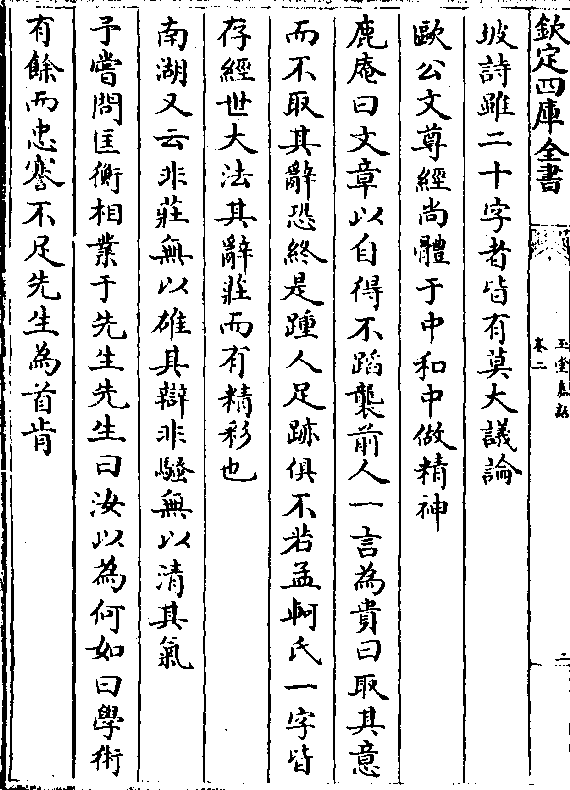 欽定四庫全書
玉堂嘉話
卷二
二
坡詩雖二十字者皆有莫大議論
歐公文尊經尚體于中和中做精神
鹿庵曰文章以自得不蹈襲前人一言為貴曰取其意
而不取其辭恐終是踵人足跡俱不若孟軻氏一字皆
存經世大法其辭莊而有精彩也
南湖又云非莊無以雄其辯非騷無以清其氣
予嘗問匡衡相業于先生先生曰汝以為何如曰學術
有餘而忠謇不足先生為首肯